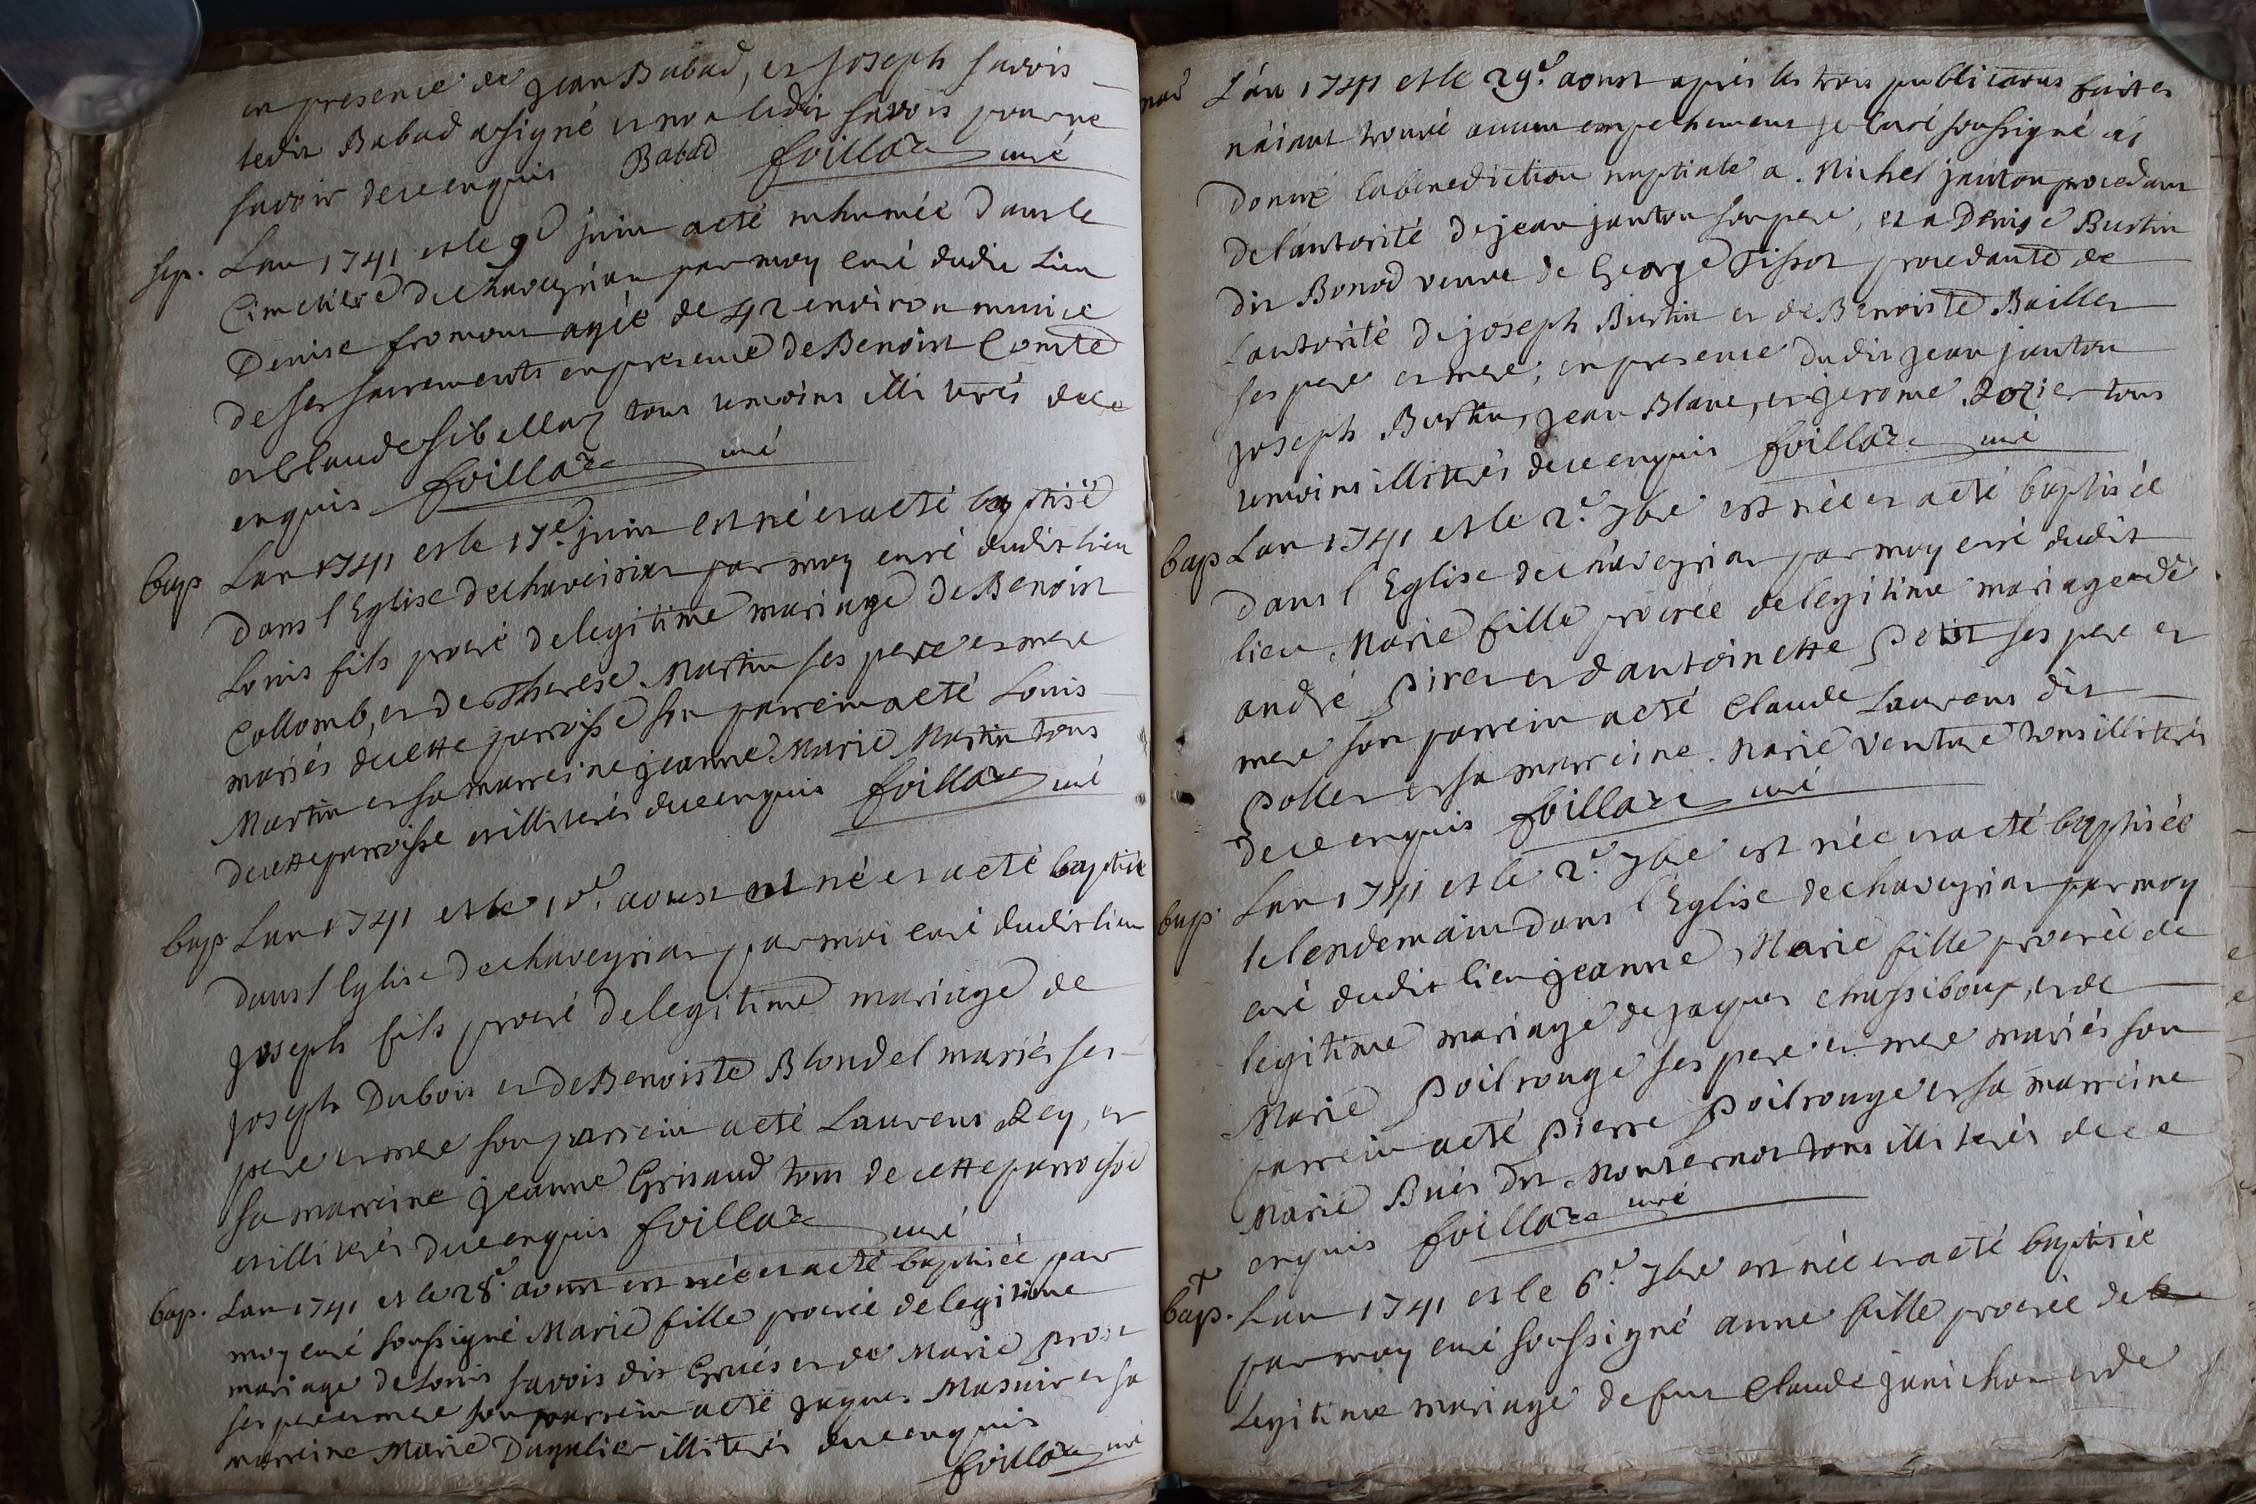 en presence de Jean Babad, et Joseph Savois
ledit Babad a signé et non ledit Savois pour ne
savoir de ce enquis Babad foillaz curé
sep. Lan 1741 et le 9e juin a eté inhumée dans le
Cimetiere de chaveyriau par moy curé dudit Lieu
Denise fromont agée de 42 environ munie
de ses sacrements en presence de Benoist Comte
et Claude Sibellaz tous temoins illiterés de ce
enquis foillaz curé
bap Lan 1741 et le 17e juin est né et a eté baptisé
dans l'Eglise de chaveiriat par moy curé dudit lieu
Louis fils procreé de legitime mariage de Benoist
Collomb, et de Therese Martin ses pere et mere
mariés de cette parroisse son parrein a eté Louis
Martin et sa marreine jeanne Marie Martin tous
de cette parroisse et illiterés de ce enquis foillaz curé
bap Lan 1741 et le 10e aoust est né et a eté baptisé
dans l'Eglise de chaveyriat par moi curé dudit lieu
Joseph fils procreé de legitime mariage de
Joseph Dubois et de Benoiste Blondel mariés ses
pere et mere son parrein a eté Laurens Rey, et
sa marreine Jeanne Grisaud tous de cette parroisse
et illiterés de ce enquis foillaz curé
bap. Lan 1741 et le 28e aoust est née et a eté baptisée par
moy curé soussigné Marie fille procreée de legitime
mariage de Louis Savois dit Grués et de Marie Prost
ses pere et mere son parrein a eté Jaques Masuir et sa
marreine Marie Dagalier illiterés de ce enquis
foillaz curé
mad L'an 1741 et le 29e aoust aprés les trois publications faites
n'aiant trouvé aucun empechement je Curé soussigné ai
donné la benediction nuptiale a Michel janton procedant
de l'autorité de jean janton son pere, et a Denise Burtin
dit Bonod veuve de George Tissot procedante de
Lautorité de joseph Burtin et de Benoiste Baillet
ses pere et mere, en presence dudit jean janton
joseph Burtin, jean Blanc, et jerome Rozier tous
temoins illiterés de ce enquis foillaz curé
bap Lan 1741 et le 2e 7bre est née et a eté baptisée
dans l'Eglise de chaveyriat par moy curé dudit
lieu, Marie fille procreée de legitime mariage de
andré Piret et d'antoinette Petit ses pere et
mere son parrein a eté Claude Laurens dit
Pollet et sa marreine Marie Venture tous illiterés
de ce enquis foillaz curé
bap. Lan 1741 et le 2e 7bre est née et a eté baptisée
le lendemain dans l'Eglise de chaveyriat par moy
curé dudit lieu jeanne Marie fille procreée de
legitime mariage de jaques chassibouf, et de
Marie Poilrouge ses pere et mere mariés son
parrein a eté Pierre Poilrouge et sa marreine
Marie Bués dit Monternot tous illiterés de ce
enquis foillaz curé
bap. Lan 1741 et le 6e 7bre est née et a eté baptisée
par moy curé soussigné anne fille procreée de
Legitime mariage de feu Claude janichon et de